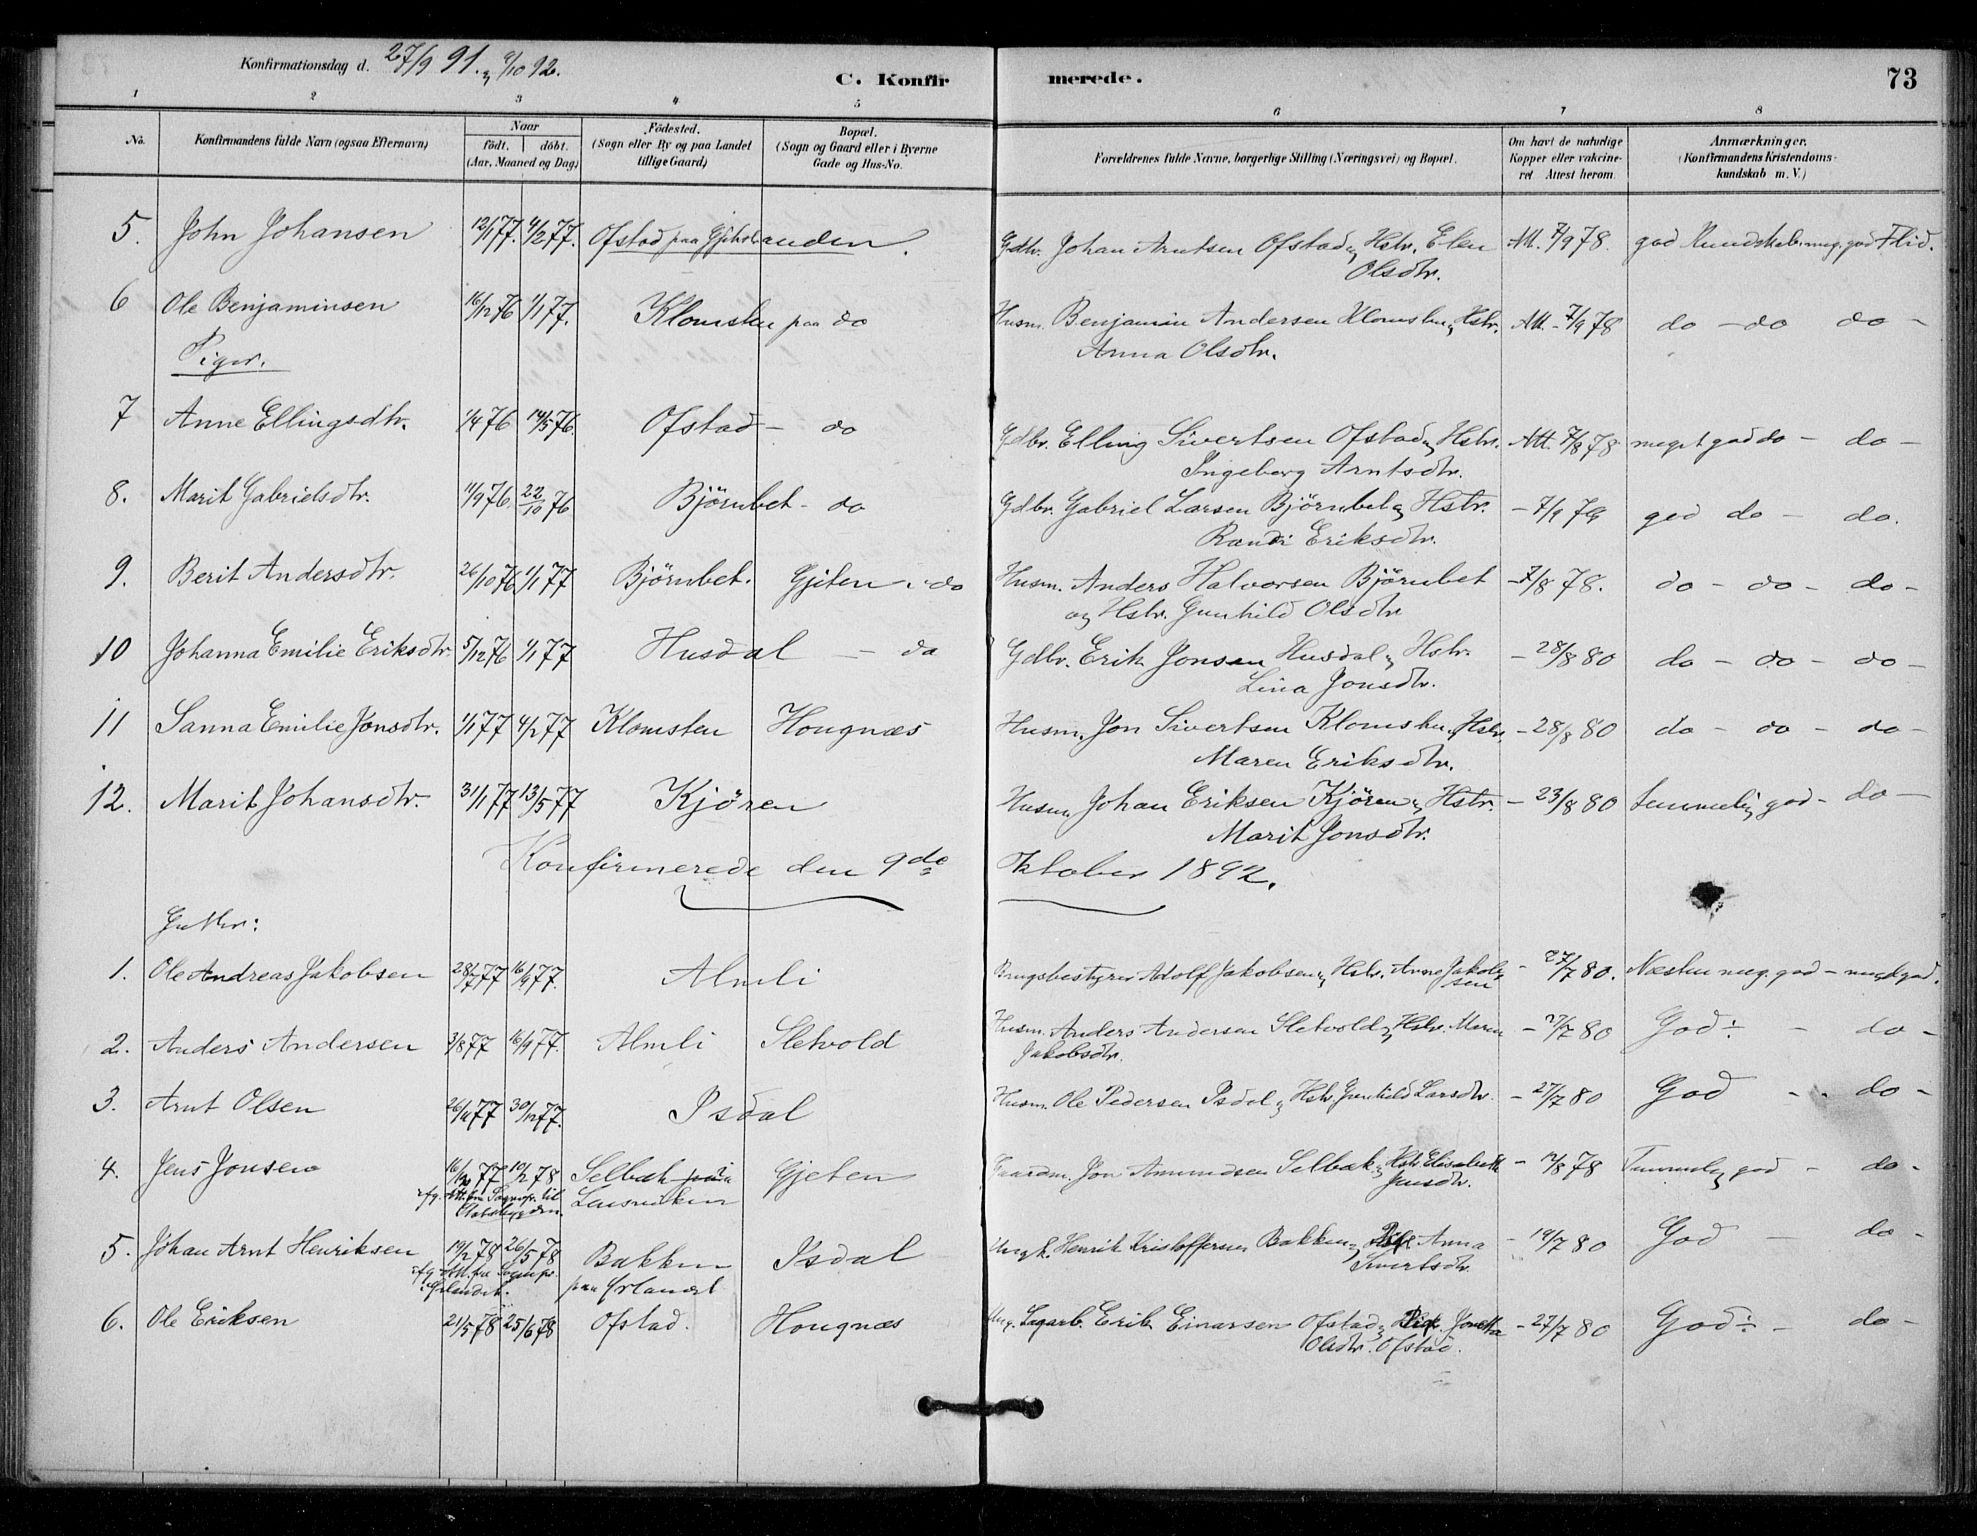 Konfirmationsdag d. 27/9 91. & 9/10 92.
C. Konfirmerede.
73
1 2 3 4 5 6 7 8
No. Konfirmandens fulde Navn (ogsaa Efternavn) Naar födt. döbt. (Aar, Maaned og Dag) Födested. (Sogn eller By og paa Landet tillige Gaard) Bopæl. (Sogn og Gaard eller i Byerne Gade og Hus-No. Forældrenes fulde Navne, borgerlige Stilling (Næringsvei) og Bopæl. Om havt de naturlige Kopper eller vakcineret Attest herom Anmærkninger. (Konfirmandens Kristendomskundskab m. V.)
5. John Johansen 12/1 77. 4/2 77. Ofstad paa Gjeitstranden. Gdbr. Johan Arntsen Ofstad & Hstr. Elen Att. 7/9 78. god Kundskab. meg. god Flid.
Olsdtr.
6 Ole Benjaminsen 16/12 76 1/1 77. Klomsten paa do Husm. Benjamin Andersen Klomsten & Hstr. Att. - 7/9 78 do - do do -
Anna Olsdtr.
Piger.
7 Anne Ellingsdtr. 1/4 76 14/5 76. Ofstad - do Gdbr. Elling Sivertsen Ofstad & Hstr. Att. 7/8 78 meget god do - do -
Ingeborg Arntsdtr.
8. Marit Gabrielsdtr. 11/9 76. 22/10 76 Björnbet - do Gdbr. Gabriel Larsen Björnbet & Hstr. - 7/9 79 god do - do.
Randi Eriksdtr.
9. Berit Andersdtr. 26/10 76 1/1 77 Björnbet. Gjeten i do Husm. Anders Halvorsen Björnbet - 7/8 78. do - do - do -
og Hstr. Gunhild Olsdtr
10 Johanna Emilie Eriksdtr. 5/12 76 1/1 77 Husdal - do Gdbr. Erik Jonsen Husdal & Hstr. - 28/8 80 do - do - do -
Lina Jonsdtr.
11 Sanna Emilie Jonsdtr. 1/1 77 4/2 77 Klomsten Hougnæs Husm. Jon Sivertsen Klomsten & Hstr. - 28/8 80 do - do - do -
Maren Eriksdtr.
12. Marit Johansdtr. 31/1 77 13/5 77 Kjören Husm. Johan Eriksen Kjören & Hstr. - 23/8 80 temmelig god - do -
Marit Jonsdtr.
Konfirmerede den 9de Oktober 1892.
Gutter:
1. Ole Andreas Jakobsen 28/7 77 16/9 77. Almli Brugsbestyrer Adolf Jakobsen & Hstr. Anne Jakobsen - 27/7 80. Næsten meg. god - meget god.
2. Anders Andersen 3/8 77 16/9 77. Almli Sletvold Husm. Anders Andersen Sletvold & Hstr. Maren - 27/7 80 God ÷ - do -
Jakobsdtr.
3. Arnt Olsen 26/11 77 30/12 77. Isdal Husm. Ole Pedersen Isdal & Hstr. Gunhild Larsdtr. - 27/7 80 God - do -
4. Jens Jonsen 16/12 77 10/2 78 Selbæk Gjeten Gaardm. Jon Amundsen Selbæk & Hstr Elisabeth - 12/8 78 Temmelig god - do -
Jensdtr.
5. Johan Arnt Henriksen 19/2 78 26/5 78 Bakken Isdal Ungk. Henrik Kristoffersen Bakken & Pige Anna - 14/7 80 God - do -
Sivertsdtr.
paa Ørlandet
6. Ole Eriksen 21/5 78 25/6 78 Ofstad. Hougnæs Ung. Erik Einarsen Ofstad & Pige Jonetta - 27/7 80 God ÷ - do -
Olsdtr. Ofstad.